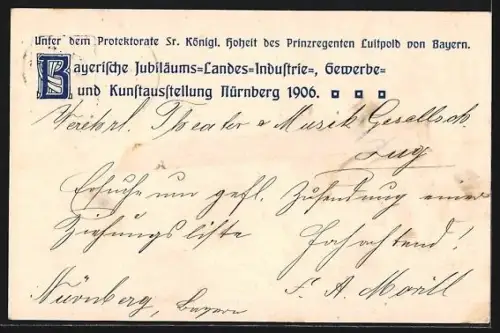 Unter dem Protektorate Sr. Königl. Hoheit des Prinzregenten Luitpold von Bayern.
Bayerische Jubiläums=Landes=Industrie=, Gewerbe=
und Kunstausstellung Nürnberg 1906.
Verehrl. Theater & Musik Gesellsch.
Zug
Ersuche um gefl. Zusendung einer
Ziehungsliste Hochachtend!
Nürnberg, Bayern F. A.